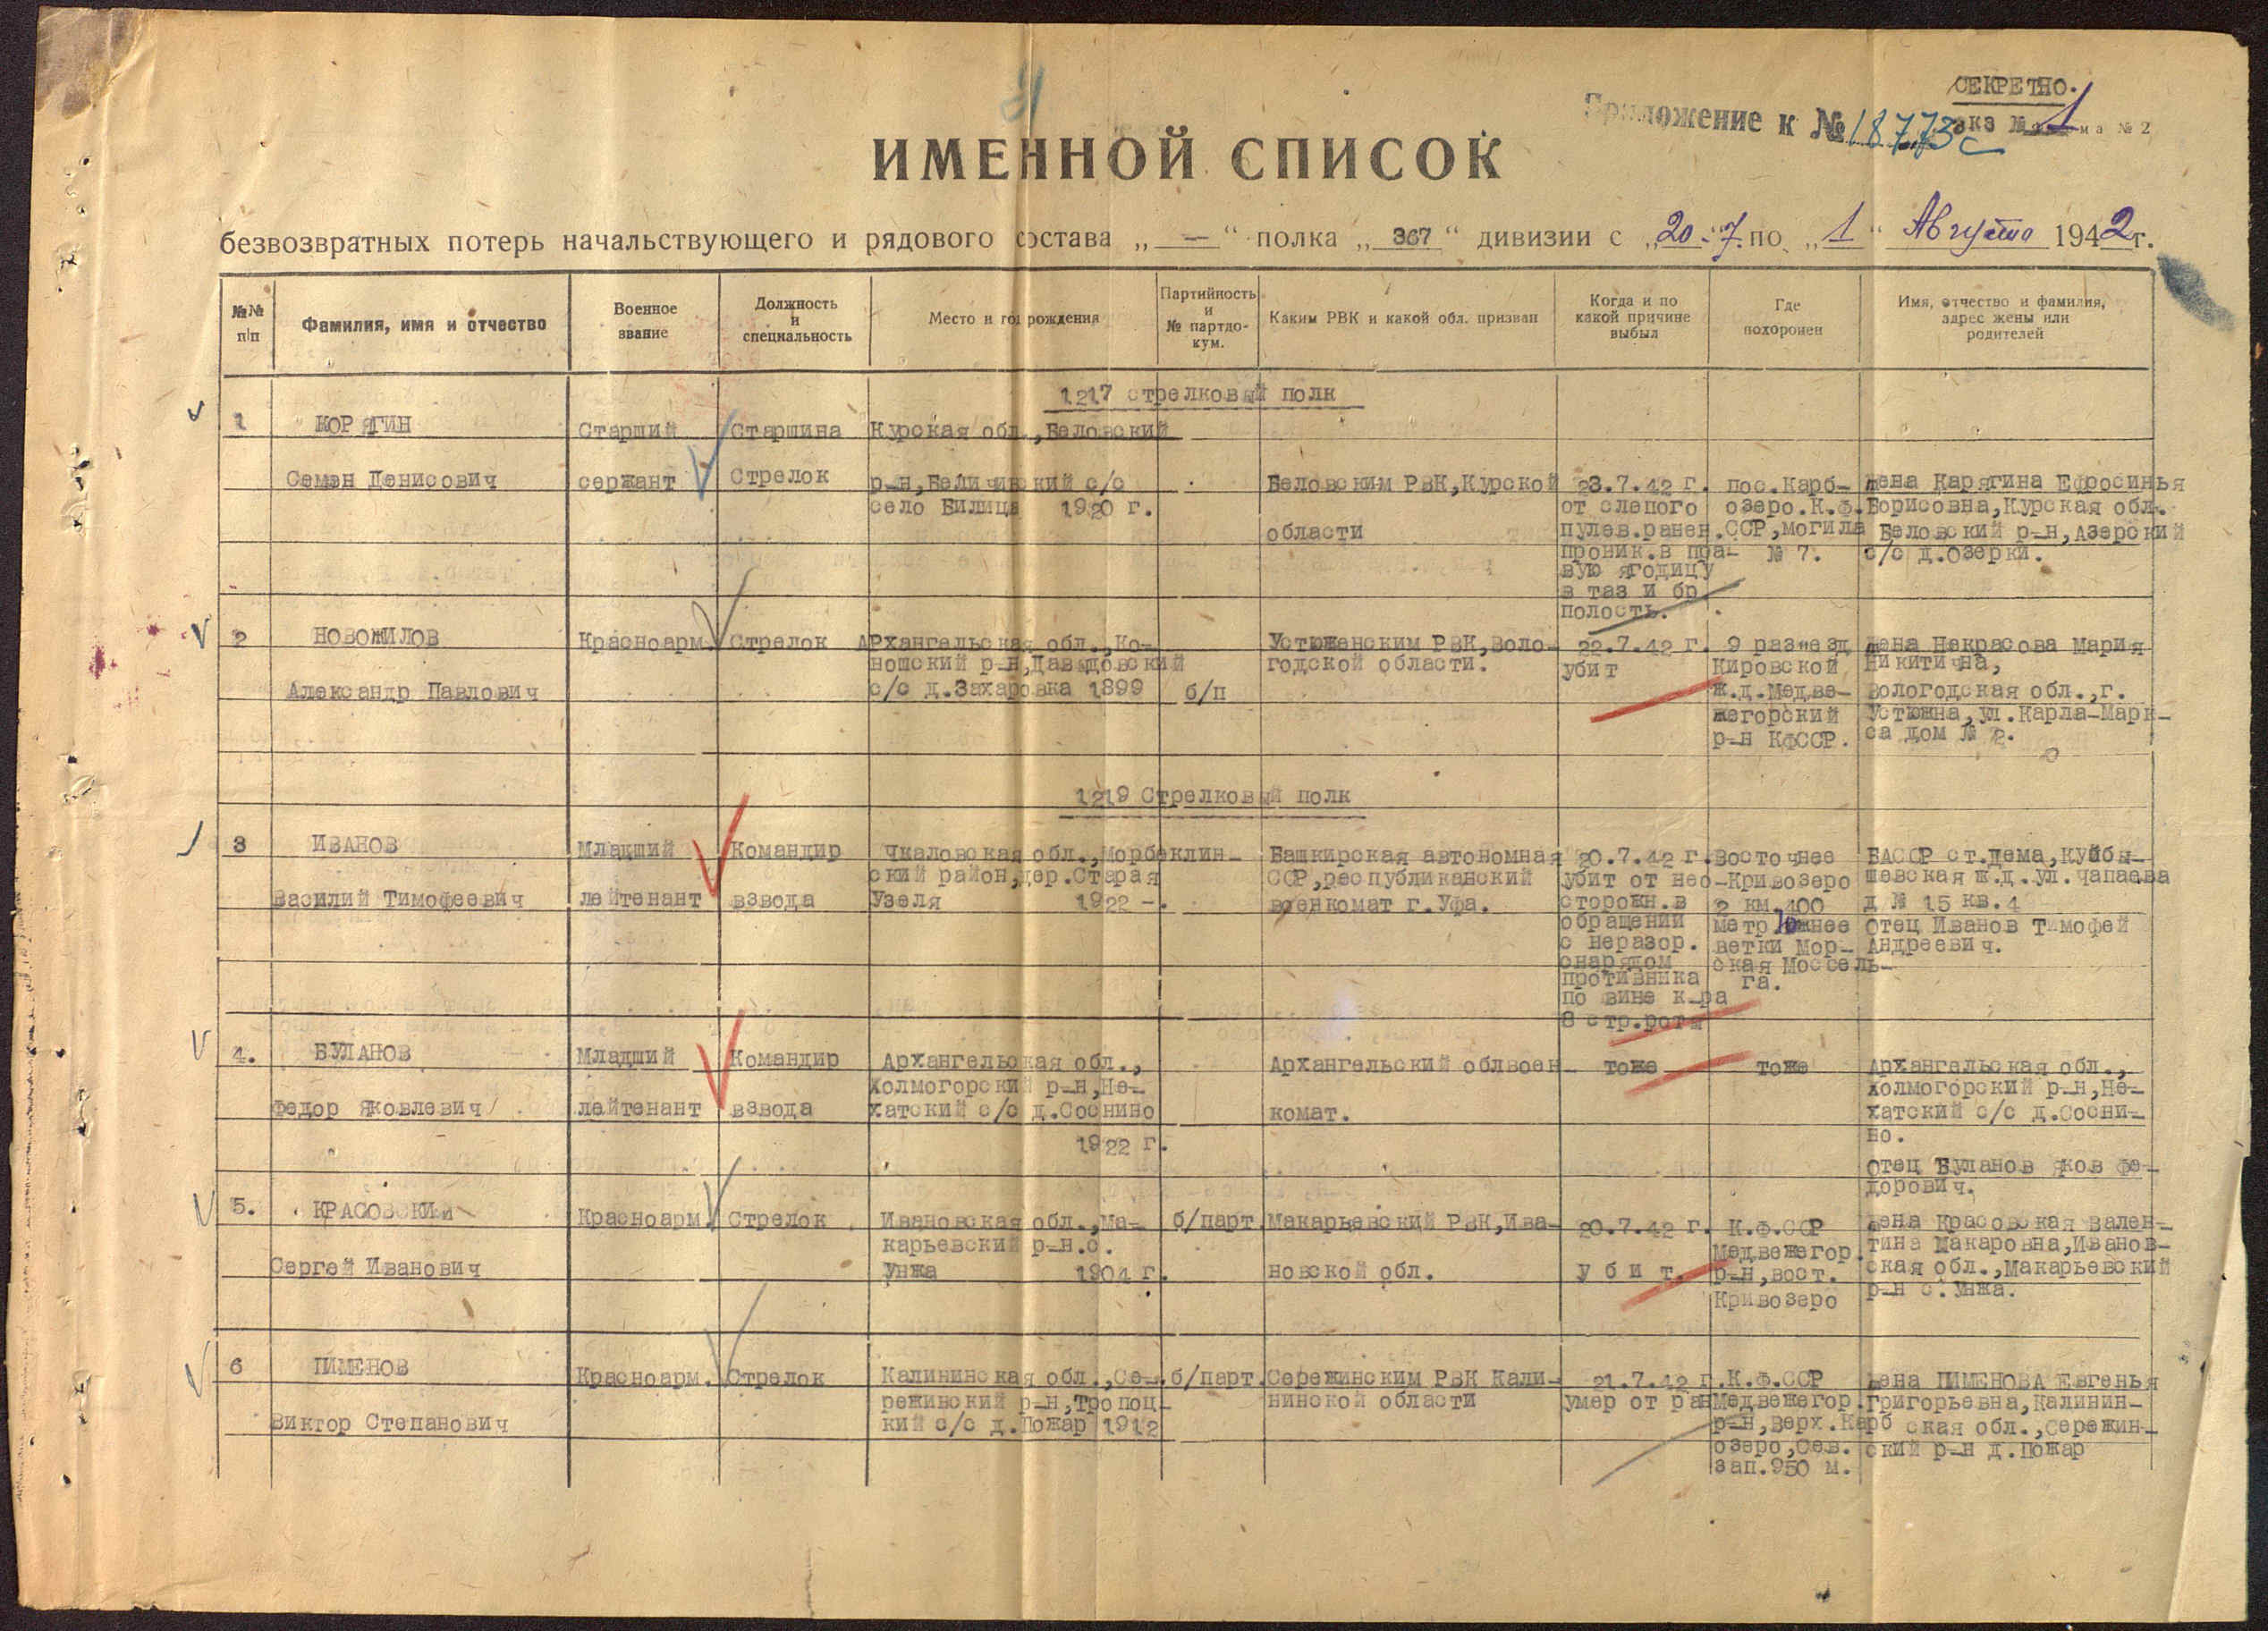 СЕКРЕТНО.
Приложение к № 18773с
экз № 1
ма № 2
ИМЕННОЙ СПИСОК
безвозвратных потерь начальствующего и рядового состава „ — “ полка „ 367 “ дивизии с „20“ 7. по „ 1 “ Августа 1942 г.
№№ п/п
Фамилия, имя и отчество
Военное звание
Должность и специальность
Место и год рождения
Партийность и № партдо-кум.
Каким РВК и какой обл. призван
Когда и по какой причине выбыл
Где похоронен
Имя, отчество и фамилия, адрес жены или родителей
1217 стрелковый полк
1
КОРЯГИН
Семен Денисович
Старший
сержант
Старшина
Стрелок
Курская обл., Беловский
р-н, Беличинский с/с
село Билица 1920 г.
Беловским РВК, Курской
области
23.7.42 г.
от слепого
пулев.ранен.
проник.в пра-
вую ягодицу
в таз и бр
полость.
пос.Карб-
озеро.К.ф.
ССР, могила
№ 7.
жена Карягина Ефросинья
Борисовна, Курская обл.
Беловский р-н, Азерский
с/с д.Озерки.
2
НОВОЖИЛОВ
Александр Павлович
Красноарм.
Стрелок
Архангельская обл., Ко-
ношский р-н, Давыдовский
с/с д.Захаровка 1899
б/п
Устюженским РВК, Воло-
годской области.
22.7.42 г.
убит
9 раз"езд
Кировской
ж.д.Медве-
жегорский
р-н КФССР.
жена Некрасова Мария
Никитична,
Вологодская обл., г.
Устюжна, ул.Карла-Марк-
са дом № 2.
1219 Стрелковый полк
3
ИВАНОВ
Василий Тимофеевич
Младший
лейтенант
Командир
взвода
Чкаловская обл., Морбеклин-
ский район, дер.Старая
Узеля 1922 -.
Башкирская автономная
ССР, республиканский
военкомат г.Уфа.
20.7.42 г.
убит от нео-
сторожн.в
обращении
с неразор.
снарядом
противника
по вине к-ра
8 стр.роты
Восточнее
Кривозеро
2 км.400
метр южнее
ветки Мор-
ская Массель-
га.
БАССР ст.Дема, Куйбы-
шевская ж.д.ул.Чапаева
д № 15 кв.4
Отец Иванов Тимофей
Андреевич.
4.
БУЛАНОВ
Федор Яковлевич
Младший
лейтенант
Командир
взвода
Архангельская обл.,
Холмогорский р-н, Не-
хатский с/с д.Соснино
1922 г.
Архангельский облвоен-
комат.
тоже
тоже
Архангельская обл.,
Холмогорский р-н, Не-
хатский с/с д.Сосни-
но.
Отец Буланов Яков Фе-
дорович.
5.
КРАСОВСКИЙ
Сергей Иванович
Красноарм.
Стрелок
Ивановская обл., Ма-
карьевский р-н.с.
Унжа 1904 г.
б/парт
Макарьевский РВК, Ива-
новской обл.
20.7.42 г.
у б и т.
К.Ф.ССР
Медвежегор.
р-н, вост.
Кривозеро
жена Красовская Вален-
тина Макаровна, Иванов-
ская обл., Макарьевский
р-н с.Унжа.
6
ПИМЕНОВ
Виктор Степанович
Красноарм.
Стрелок
Калининская обл., Се-
режинский р-н, Тропоц-
кий с/с д.Пожар 1912
б/парт
Сережинским РВК Кали-
нинской области
21.7.42 г.
умер от ран
К.Ф.ССР
Медвежегор.
р-н, Верх.Карб
озеро, Сев.
зап.950 м.
жена ПИМЕНОВА Евгенья
Григорьевна, Калинин-
ская обл., Сережин-
ский р-н д.Пожар